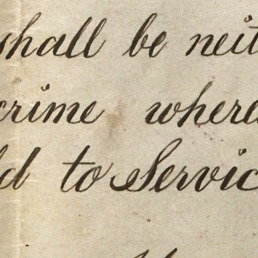 shall be neit
crime where
ld to Servic